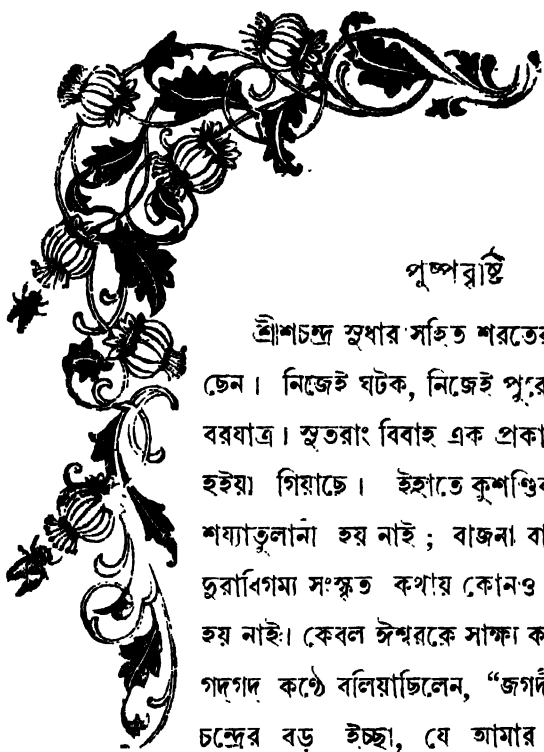 পুষ্পবৃষ্টি
শ্রীশচন্দ্র সুধার সহিত শরতের
ছেন। নিজেই ঘটক, নিজেই
বরযাত্র। সুতরাং বিবাহ এক প্রকা
হইয়া গিয়াছে। ইহাতে কুশণ্ডি
শয্যাতুলানী হয় নাই; বাজনা বা
দুরাধিগম্য সংস্কৃত কথায় কোনও
হয় নাই। কেবল ঈশ্বরকে সাক্ষ্য ক
গদ্‌গদ কণ্ঠে বলিয়াছিলেন, “জগদী
চন্দ্রের বড় ইচ্ছা, যে আমার